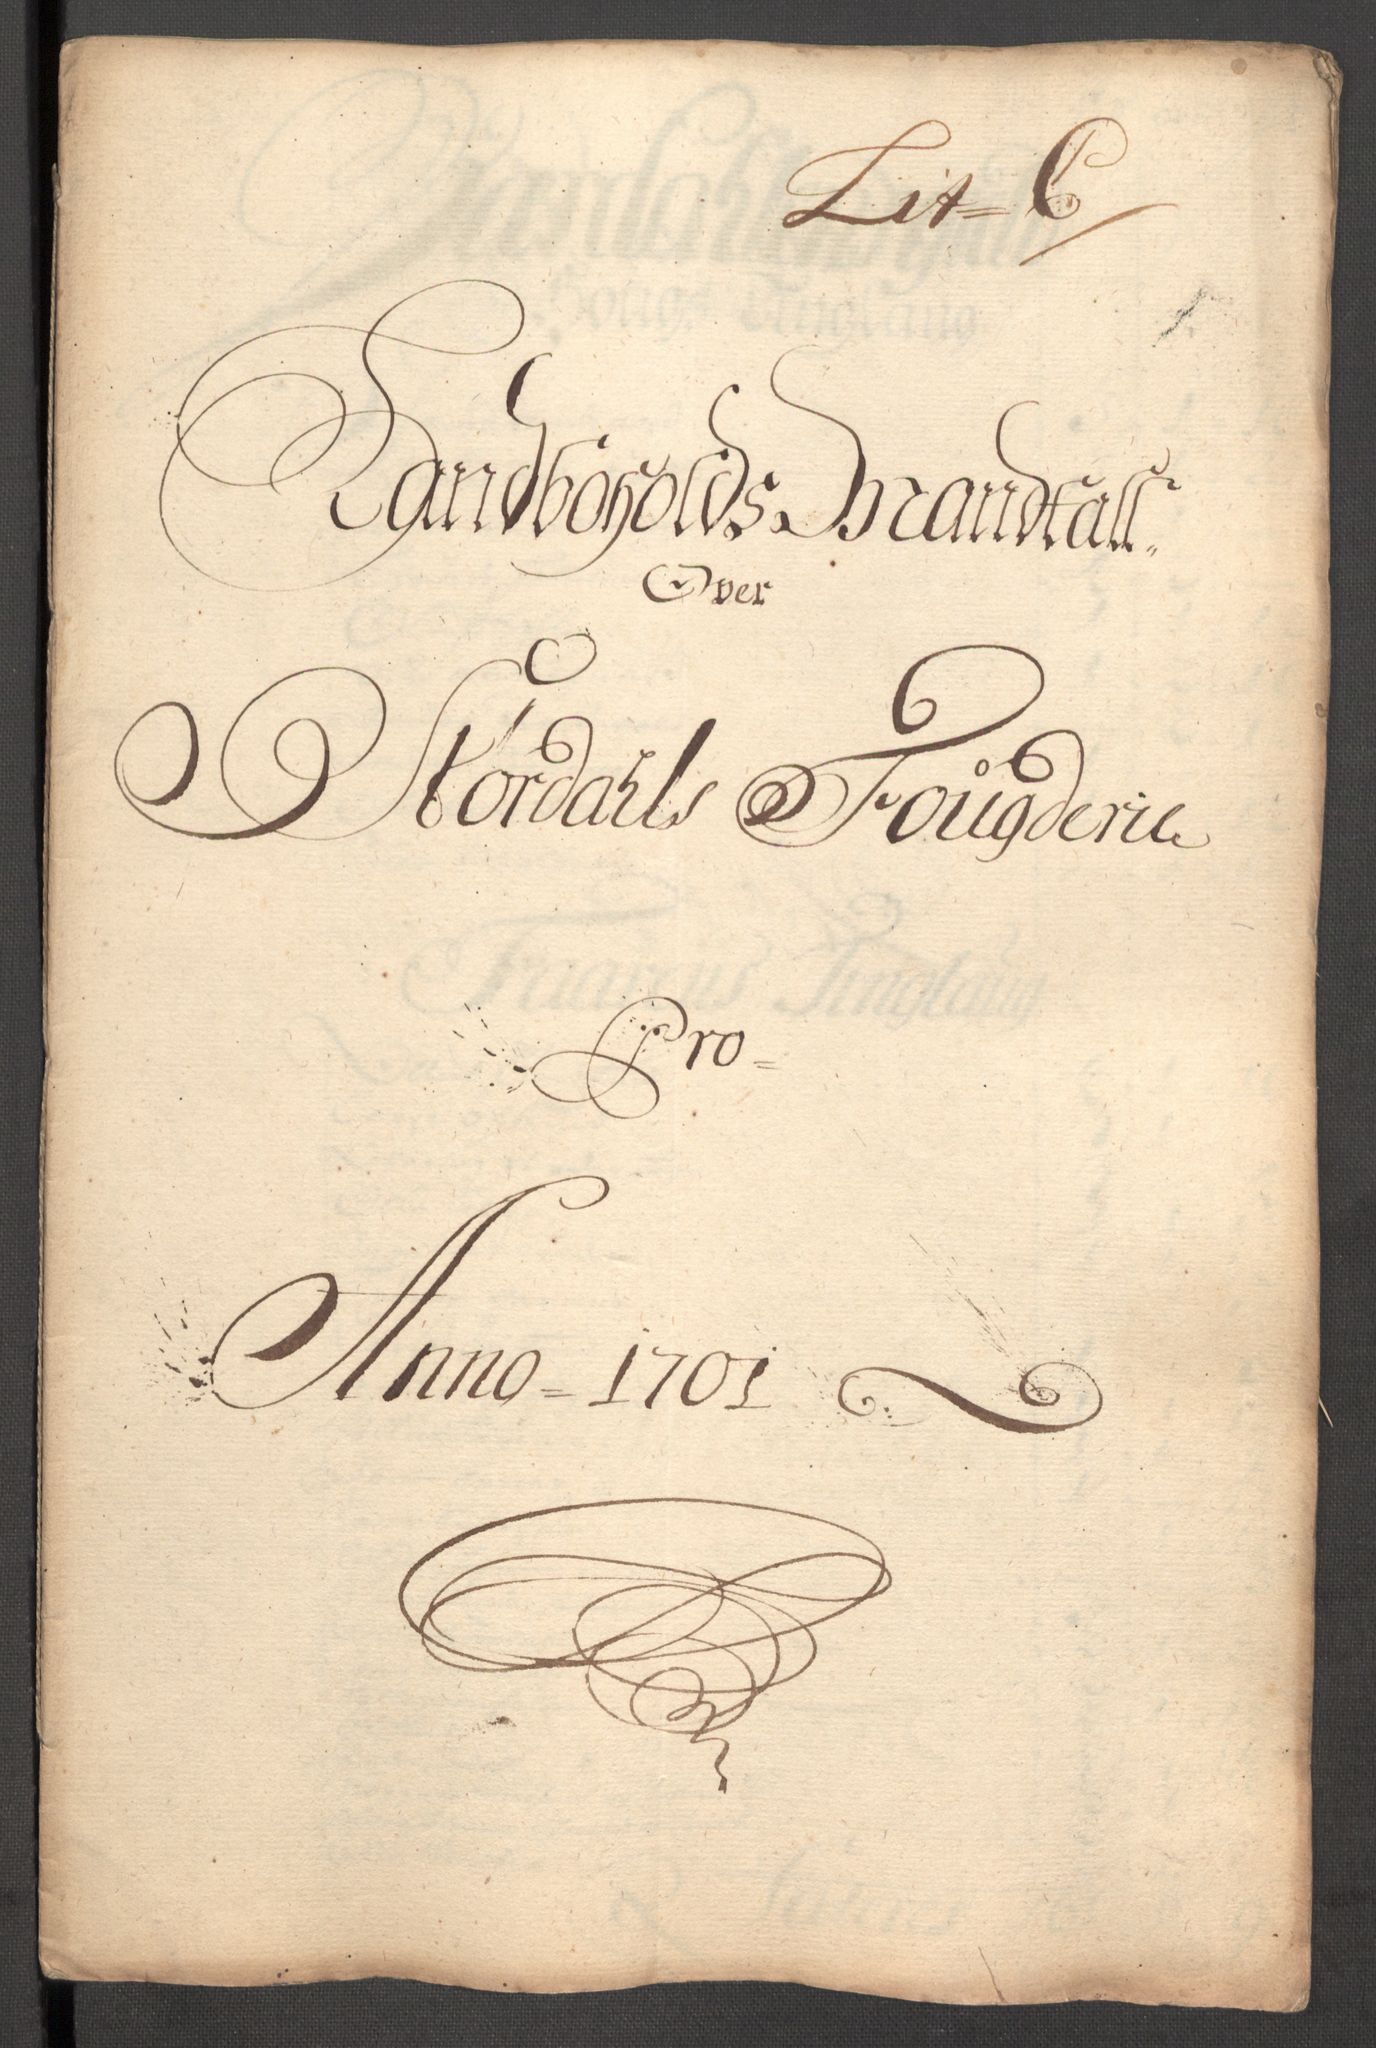 Lit= C
Landboholds Mandtall
Over
Størdahls Fougderie
Pro=
Anno= 1701